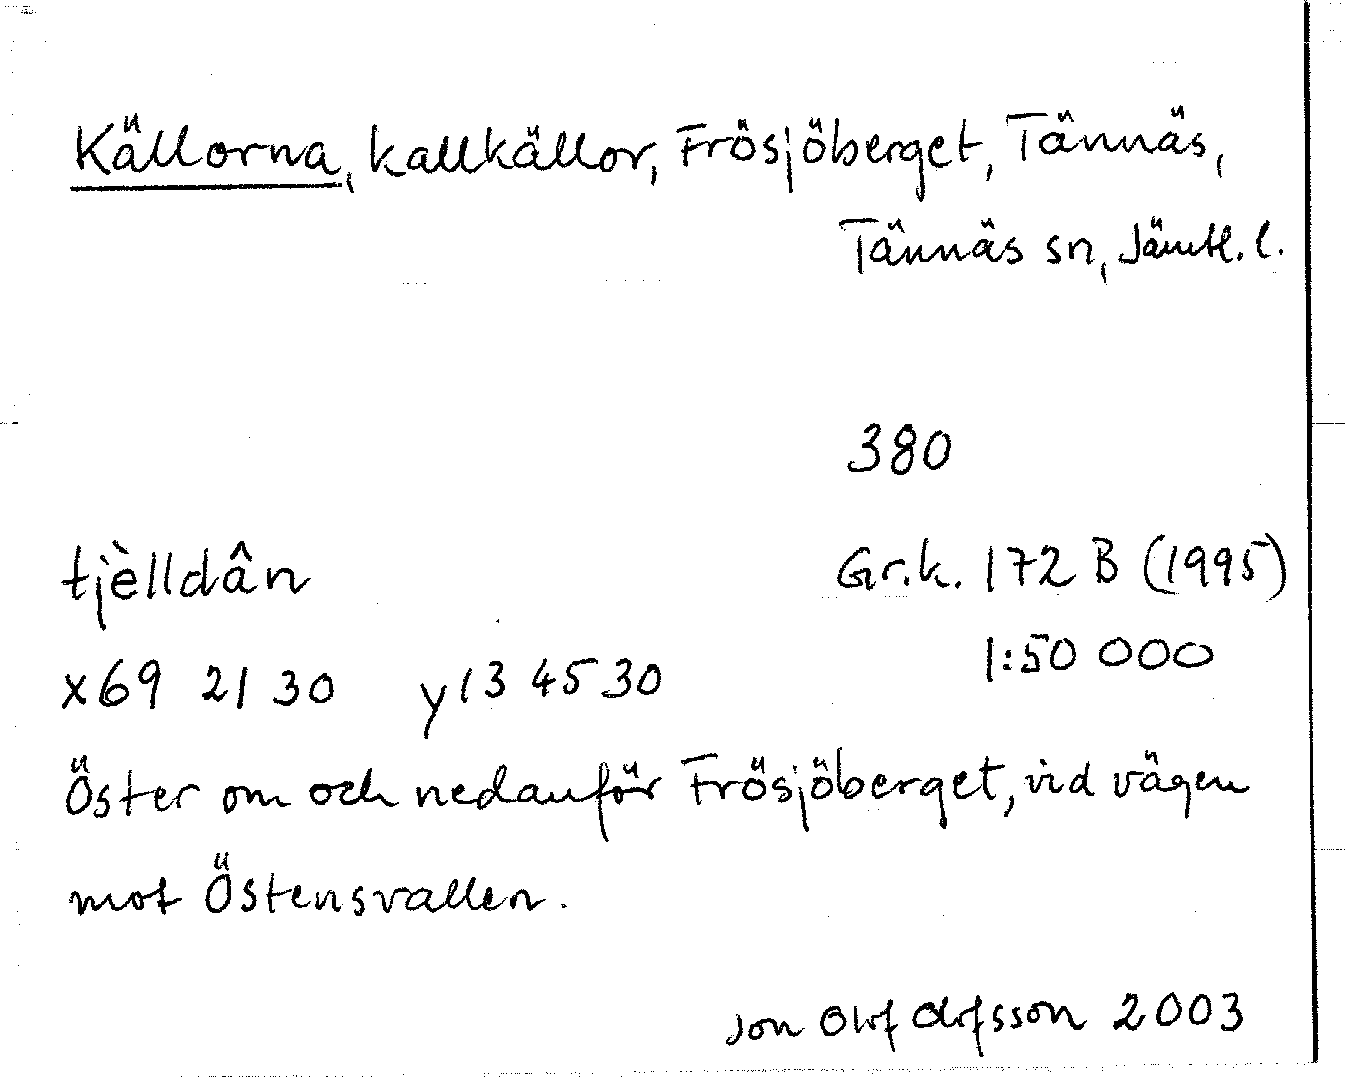 Källorna, kallkällor, Frösjöberget, Tännäs,
Tännäs sn, Jämtl. l.
380
tjèlldân
Gr.k. 172 B (1995)
1:50 000
x69 21 30 y13 45 30
Öster om och nedanför Frösjöberget, vid vägen
mot Östensvallen.
Jon Olof Olofsson 2003